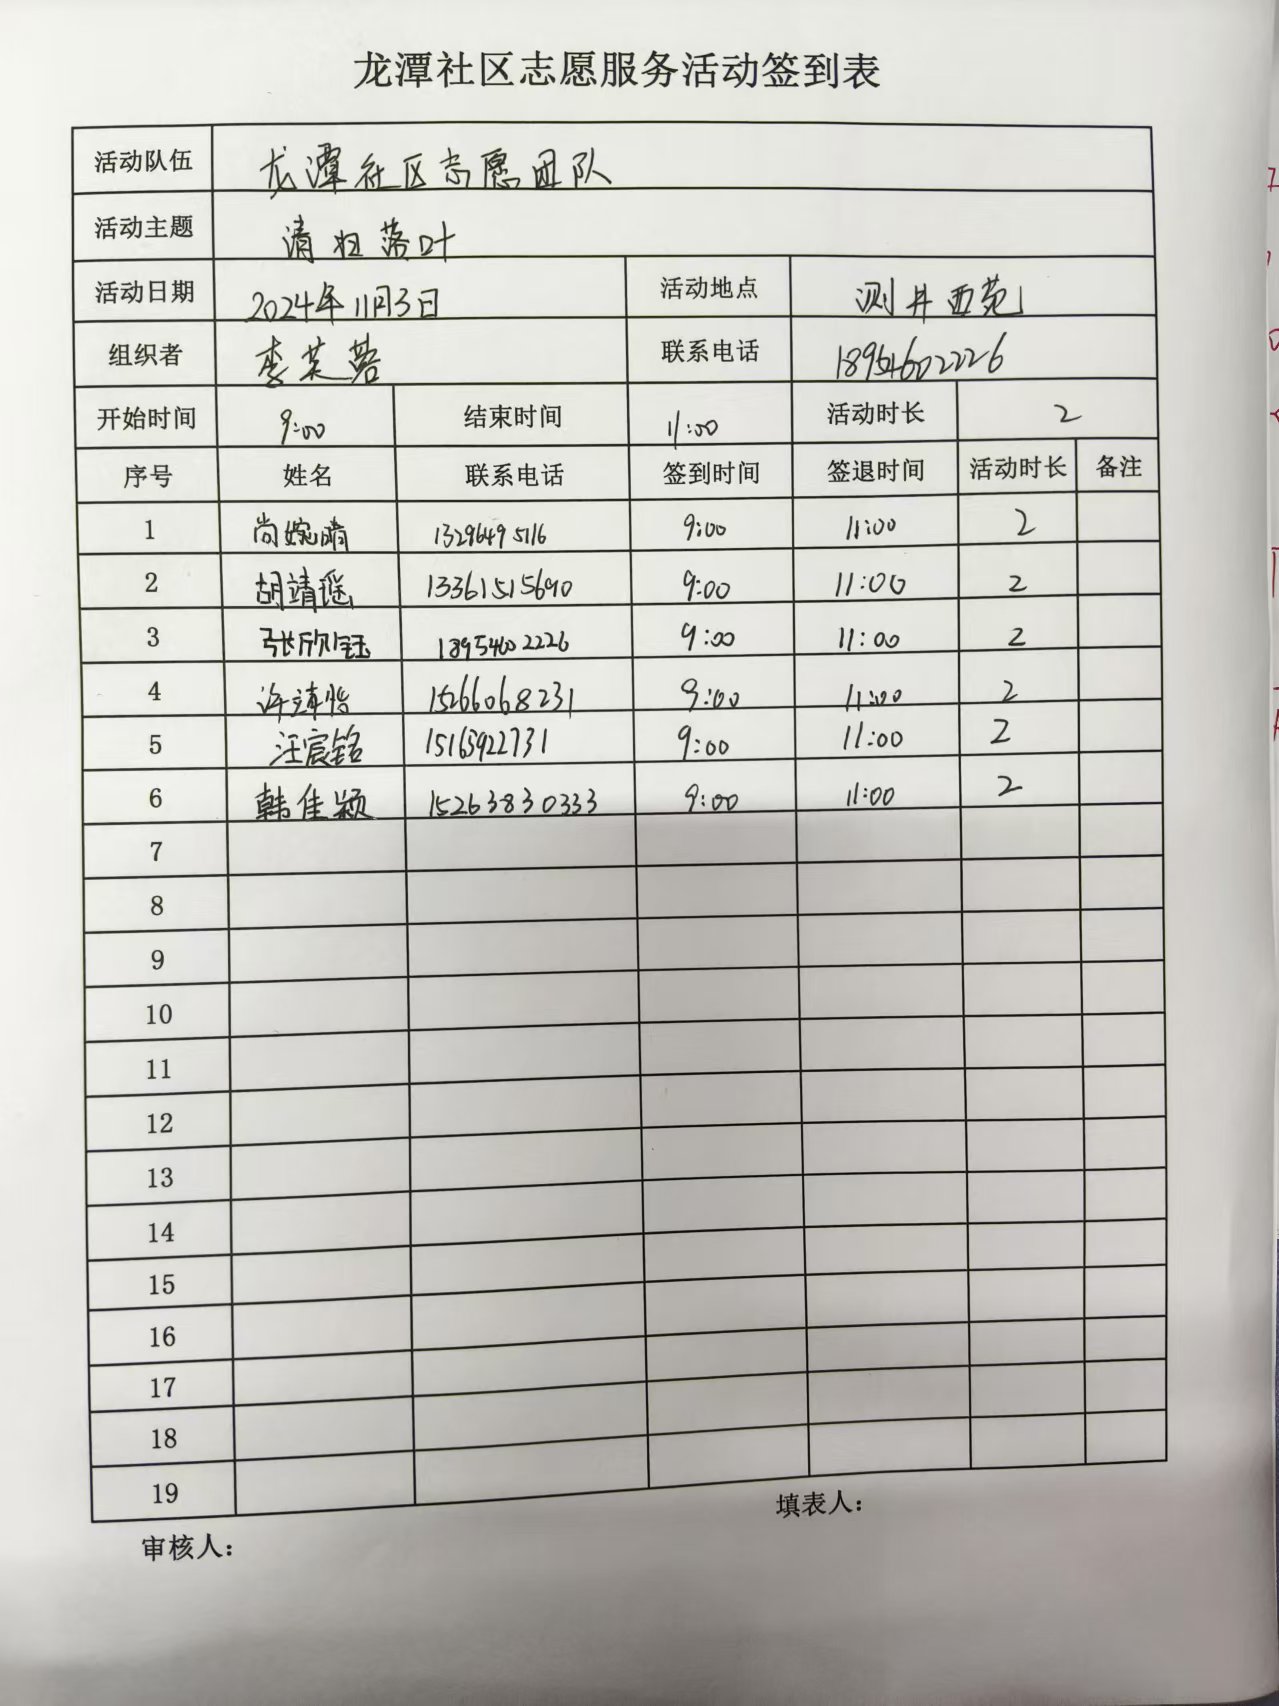 龙潭社区志愿服务活动签到表
活动队伍 龙潭社区志愿团队
活动主题 清扫落叶
活动日期 2024年11月3日 活动地点 测井西苑
组织者 李芙蓉 联系电话 18954602226
开始时间 9:00 结束时间 11:00 活动时长 2
序号 姓名 联系电话 签到时间 签退时间 活动时长 备注
1 尚婉晴 13296495116 9:00 11:00 2
2 胡靖瑶 13361515690 9:00 11:00 2
3 张欣钰 18954602226 9:00 11:00 2
4 许靖怡 15266068231 9:00 11:00 2
5 汪宸铭 15163922731 9:00 11:00 2
6 韩佳颖 15263830333 9:00 11:00 2
7
8
9
10
11
12
13
14
15
16
17
18
19
审核人： 填表人：